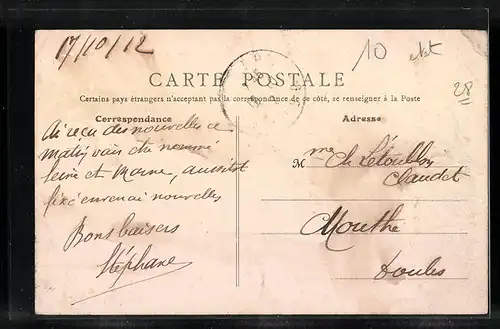 17/10/12
10
28
CARTE POSTALE
Certains pays étrangers n'acceptant pas la correspondance de ce côté, se renseigner à la Poste
Correspondance
Adresse
Ai reçu des nouvelles ce
matin vais être nommé
Seine et Marne, aussitôt
fixé enverrai nouvelles
Bons baisers
Stéphane
Mme Ch
Claudet
Mouthe
Doubs